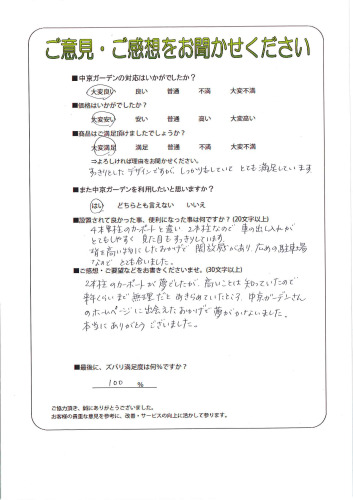 ご意見・ご感想をお聞かせください
■中京ガーデンの対応はいかがでしたか？
大変良い 良い 普通 不満 大変不満
■価格はいかがでしたか？
大変安い 安い 普通 高い 大変高い
■商品はご満足頂けましたでしょうか？
大変満足 満足 普通 不満 大変不満
⇒よろしければ理由をお聞かせください。
すっきりとしたデザインですが、しっかりもしていて とても満足しています
■また中京ガーデンを利用したいと思いますか？
はい どちらとも言えない いいえ
■設置されて良かった事、便利になった事は何ですか？(20文字以上)
4本柱のカーポートと違い 2本柱なので 車の出し入れが
とてもしやすく 見た目もすっきりしています。
柱を高い物にしたおかげで 開放感があり、広めの駐車場
なので とても合いました。
■ご感想・ご要望などをお書きくださいませ。(30文字以上)
2本柱のカーポートが夢でしたが、高いことは知っていたので
くらいまで無理だと あきらめていたところ、中京ガーデンさん
のホームページに出会えたおかげで 夢がかないました。
本当にありがとうございました。
■最後に、ズバリ満足度は何％ですか？
100 ％
ご協力頂き、誠にありがとうございました。
お客様の貴重な意見を参考に、改善・サービスの向上に活かして参ります。